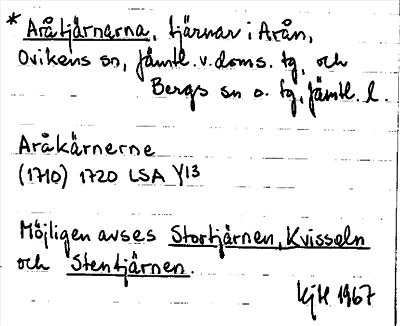 * Aråtjärnarna, tjärnar i Arån,
Ovikens sn, Jämtl. v. doms. tg, och
Bergs sn o. tg, Jämtl. l.
Aråkärnerne
(1710) 1720 LSA Y13
Möjligen avses Stortjärnen, Kvisseln
och Stentjärnen.
KjH 1967